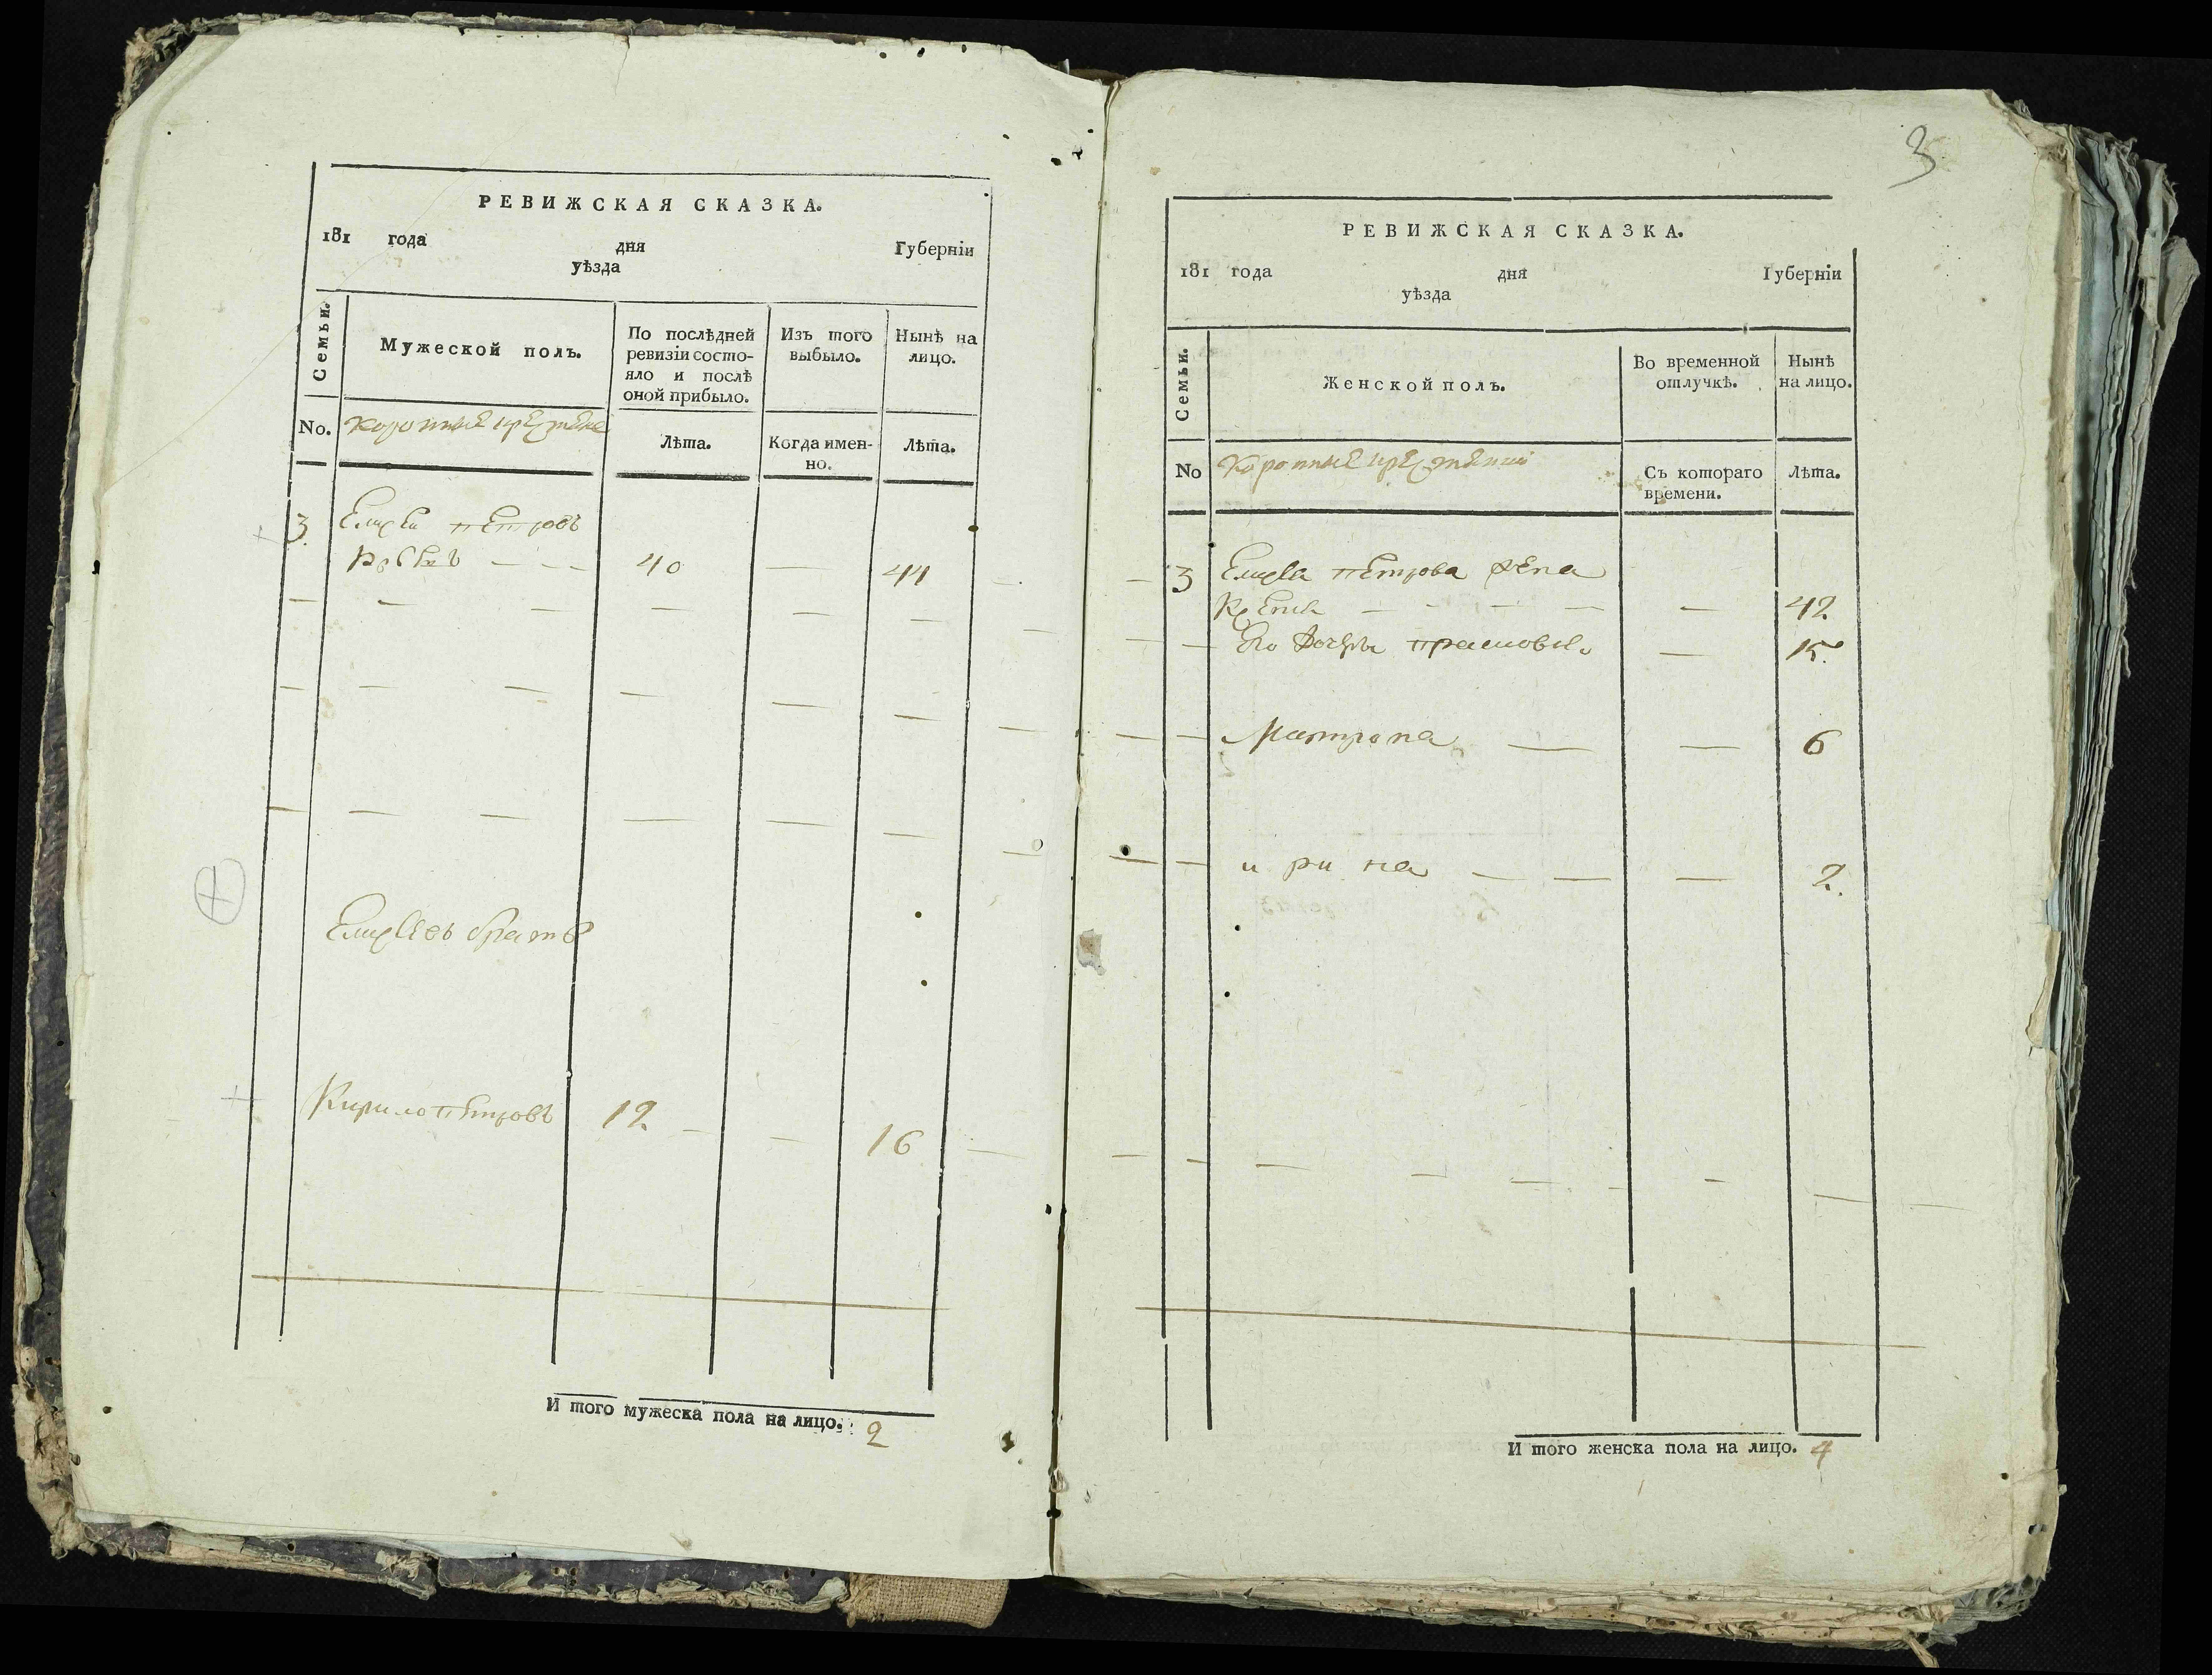 РЕВИЖСКАЯ СКАЗКА.
181 года дня Губерніи
уѣзда
Семьи.
Мужеской полъ.
По послѣдней ревизіи состо-
яло и послѣ
оной прибыло.
Изъ того
выбыло.
Нынѣ на
лицо.
No.
Лѣта.
Когда имен-
но.
Лѣта.
3 Елисей Петровъ
40 — 44
Елисеевъ братъ
Кирило Петровъ 12 — — 16
И того мужеска пола на лицо. 2
3
РЕВИЖСКАЯ СКАЗКА.
181 года дня Губерніи
уѣзда
Семьи.
Женской полъ.
Во временной
отлучкѣ.
Нынѣ
на лицо.
No
Съ котораго
времени.
Лѣта.
3 Елисея Петрова жена
— 42
Его дочери Прасковья — 15
Матрона — — 6
ирина — — — 2.
И того женска пола на лицо. 4